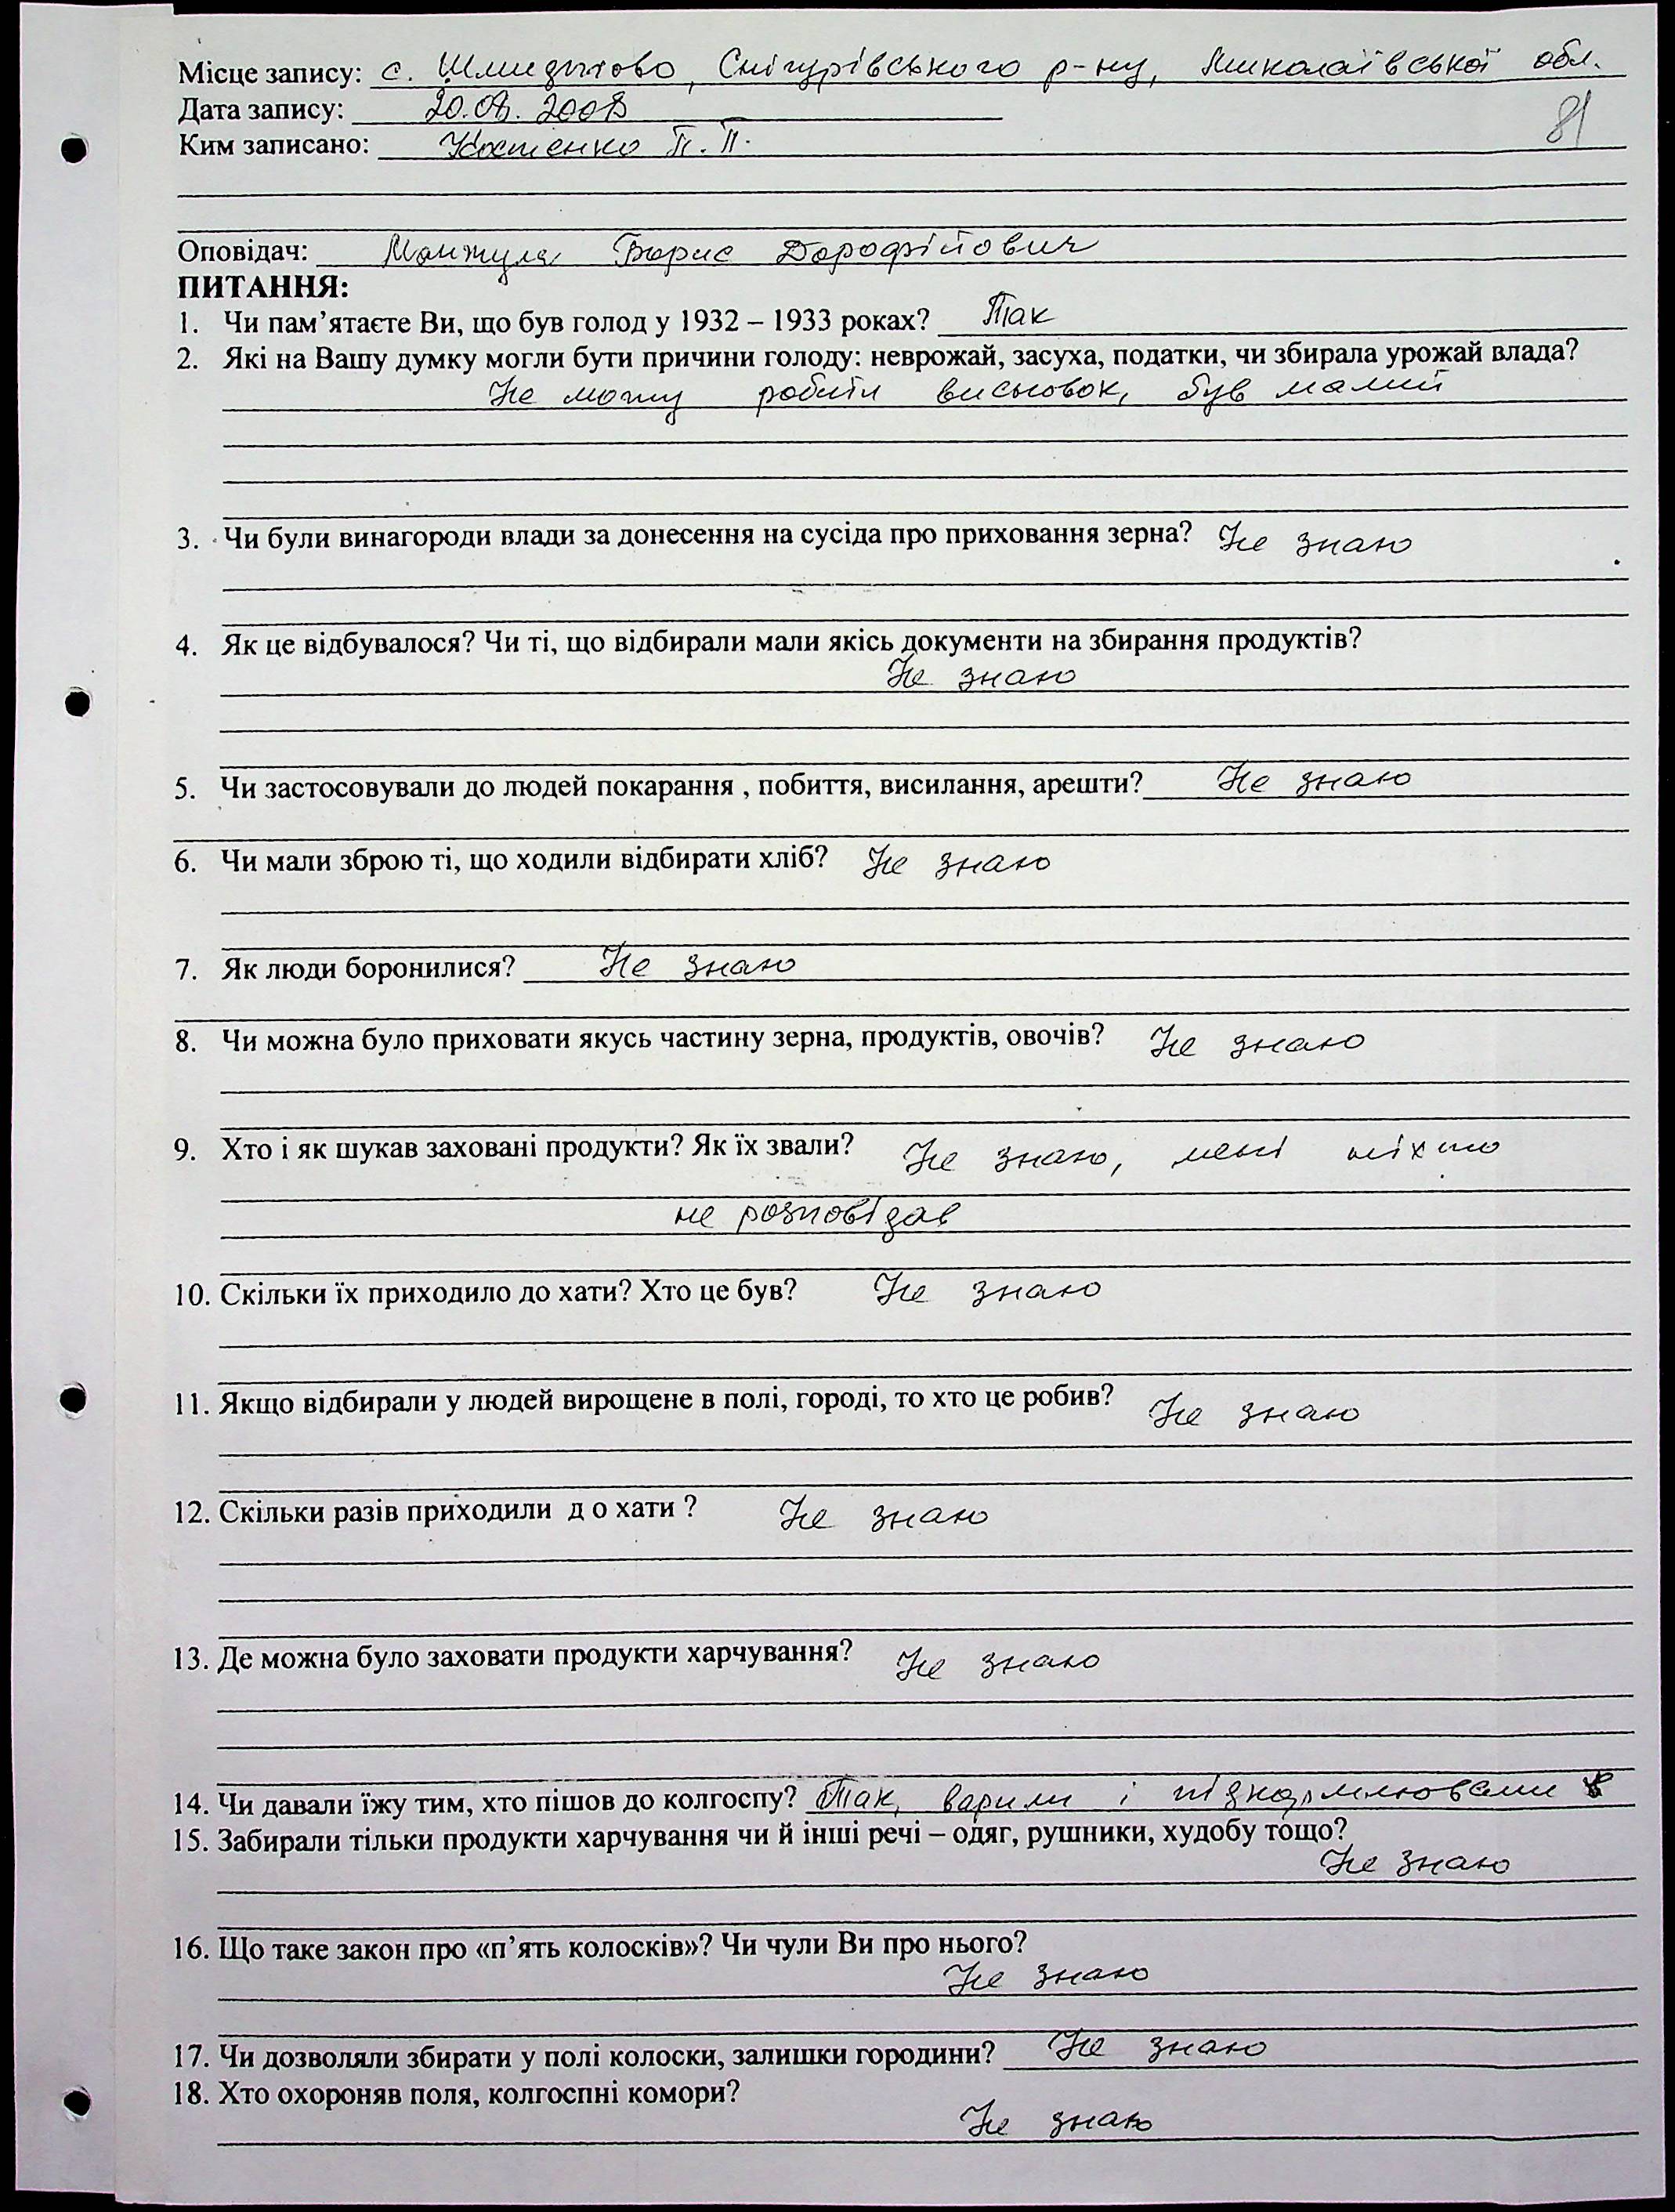 Місце запису: с. Шмидтово, Снігурівського р-ну, Миколаївської обл.
Дата запису: 20.08.2008
81
Ким записано: Костенко П. П.
Оповідач: Манжула Борис Дорофійович
ПИТАННЯ:
1. Чи пам’ятаєте Ви, що був голод у 1932 – 1933 роках? Так
2. Які на Вашу думку могли бути причини голоду: неврожай, засуха, податки, чи збирала урожай влада?
Не можу робити висновок, був малий
3. Чи були винагороди влади за донесення на сусіда про приховання зерна? Не знаю
4. Як це відбувалося? Чи ті, що відбирали мали якісь документи на збирання продуктів?
Не знаю
5. Чи застосовували до людей покарання , побиття, висилання, арешти? Не знаю
6. Чи мали зброю ті, що ходили відбирати хліб? Не знаю
7. Як люди боронилися? Не знаю
8. Чи можна було приховати якусь частину зерна, продуктів, овочів? Не знаю
9. Хто і як шукав заховані продукти? Як їх звали? Не знаю, мені ніхто
не розповідав
10. Скільки їх приходило до хати? Хто це був? Не знаю
11. Якщо відбирали у людей вирощене в полі, городі, то хто це робив? Не знаю
12. Скільки разів приходили д о хати ? Не знаю
13. Де можна було заховати продукти харчування? Не знаю
14. Чи давали їжу тим, хто пішов до колгоспу? Так, варили і підкормлювали
15. Забирали тільки продукти харчування чи й інші речі – одяг, рушники, худобу тощо?
Не знаю
16. Що таке закон про «п’ять колосків»? Чи чули Ви про нього?
Не знаю
17. Чи дозволяли збирати у полі колоски, залишки городини? Не знаю
18. Хто охороняв поля, колгоспні комори?
Не знаю